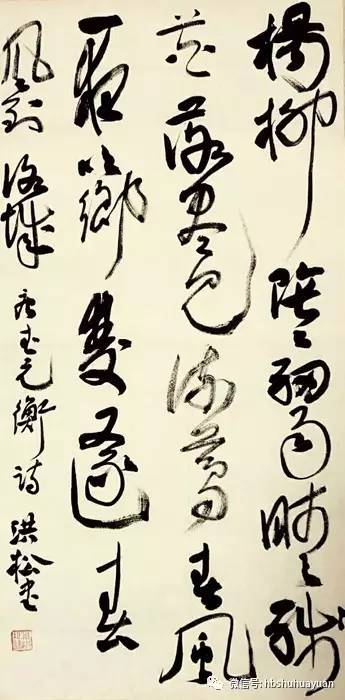 楊柳陰〻細雨晴殘
花落盡見流鶯春風
一夜吹鄉夢又逐春
風到洛城 唐武元衡詩 洪松書
微信号: hbshuhuayuan